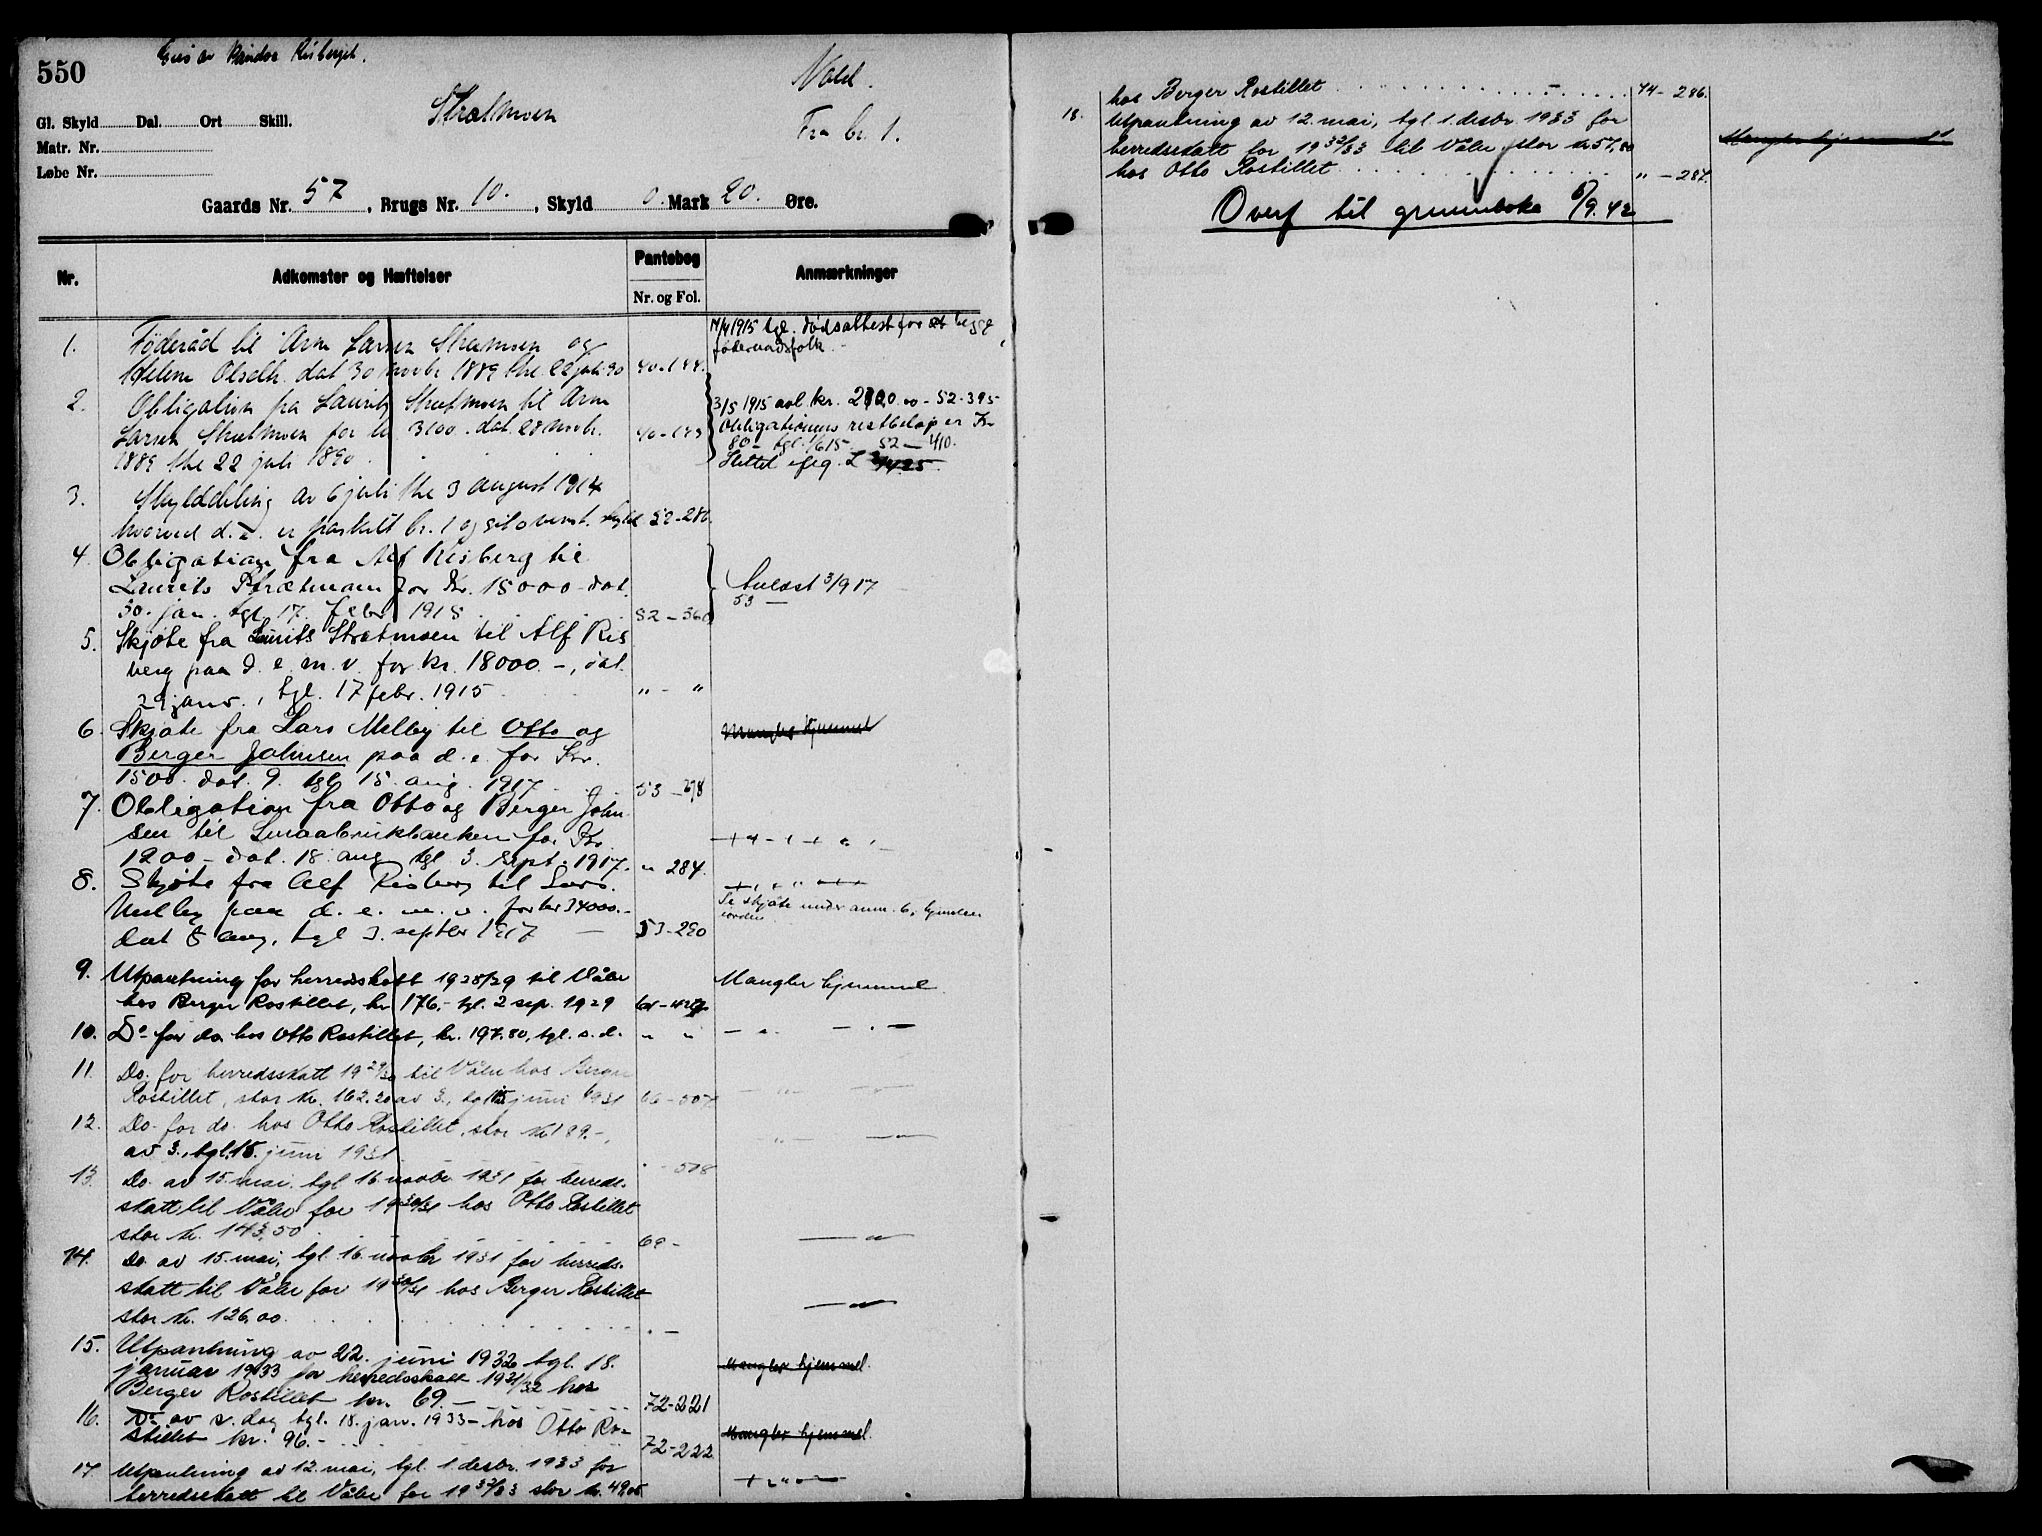 550
Risberget.
Vold.
Strætmoen
Fra br. 1.
Gl. Skyld Dal. Ort Skill.
Matr. Nr.
Løbe Nr.
Gaards Nr. 57, Brugs Nr. 10., Skyld 0. Mark 20. Øre.
Nr. Adkomster og Hæftelser Pantebog Anmærkninger
Nr. og Fol.
1. Føderåd til Arne Larsen Strætmoen og
Helene Olsdtr. dat 30 novbr 1889 thl 22 juli 90 40-144.
17/4 1915 tgl. dødsattest for begge
føderaadsfolk.
2. Obligation fra Laurits Strætmoen til Arne
Larsen Strætmoen for kr 3100. dat. 28 novbr.
1889 thl 22 juli 1890
3/5 1915 avl. kr. - 52-395
Obligationens restbeløp er Kr.
80- tgl. 1/6 15 52 - 410.
Slettet
3. Skylddeling av 6 juli thl 3 august 1914
hvorved d. e. er fraskilt br. 1 og gitt ovenst. skyld 52-280.
4. Obligation fra Alf Risberg til
Laurits Strætmoen for Kr. 15000 - dat.
30. jan. tgl. 17. febr. 1915 52-360
Avlæst 3/9 17
53 -
5. Skjøte fra Laurits Strætmoen til Alf Ris
berg paa d. e. m. v. for kr. 18000.-, dat.
29 janr., tgl. 17 febr. 1915 " - "
6. Skjøte fra Lars Melby til Otto og
Berger Johnsen paa d. e. for Kr.
1500. dat. 9. tgl. 15. aug. 1917 53-278
Mangler hjemmel
7. Obligation fra Otto og Berger John
sen til Smaabrukbanken for Kr.
1200- dat. 18. aug tgl. 3. sept. 1917. " 284.
8. Skjøte fra Alf Risberg til Lars
Melby paa d. e. m. v. for kr 34000.-
dat 8 aug, tgl 3. septbr 1917 53-290
Se skjøte under anm. 6, hjemmelen
iorden
9. Utpantning for herredskatt 1928/29 til Våler
hos Berger Rostillet, kr 176,- tgl. 2 sep. 1929
Mangler hjemmel.
10. Do for do hos Otto Rostillet, kr. 197.80, tgl. s. d. " "
11. Do. for herredsskatt 1929/30 til Våler hos Berger
Rostillet, stor kr. 162.20 av 3., tgl. 15 juni 1931 66-507
12. Do. for do. hos Otto Rostillet, stor kr 189.-,
av 3., tgl. 15. juni 1931 " - 508
13. Do. av 15. mai, tgl 16 novbr 1931 for herreds-
skatt til Våler for 1930/31 hos Otto Rostillet
stor kr. 143,50 69 -
14. Do. av 15. mai, tgl. 16. novbr 1931 for herreds-
skatt til Våler for 1930/31 hos Berger Rostillet
stor kr. 126,00
15. Utpantning av 22. juni 1932 tgl. 18.
januar 1933 for herredsskatt 1931/32 hos
Berger Rostillet kr. 69.- 72-221
Mangler hjemmel.
16. Do av s. dag tgl. 18. jan. 1933 - hos Otto Ro-
stillet kr. 96.- 72-222
Mangler hjemmel.
17. Utpantning av 12. mai, tgl. 1. desbr. 1933 for
herredsskatt til Våler for 1932/33 stor kr. 49,05
hos Berger Rostillet 74-286.
18. Utpantning av 12. mai, tgl. 1. desbr. 1933 for
herredsskatt for 1932/33 til Våler stor kr 57,80
hos Otto Rostillet " - 287.
Mangler hjemmel
Overf til grunnboka 8/9.42